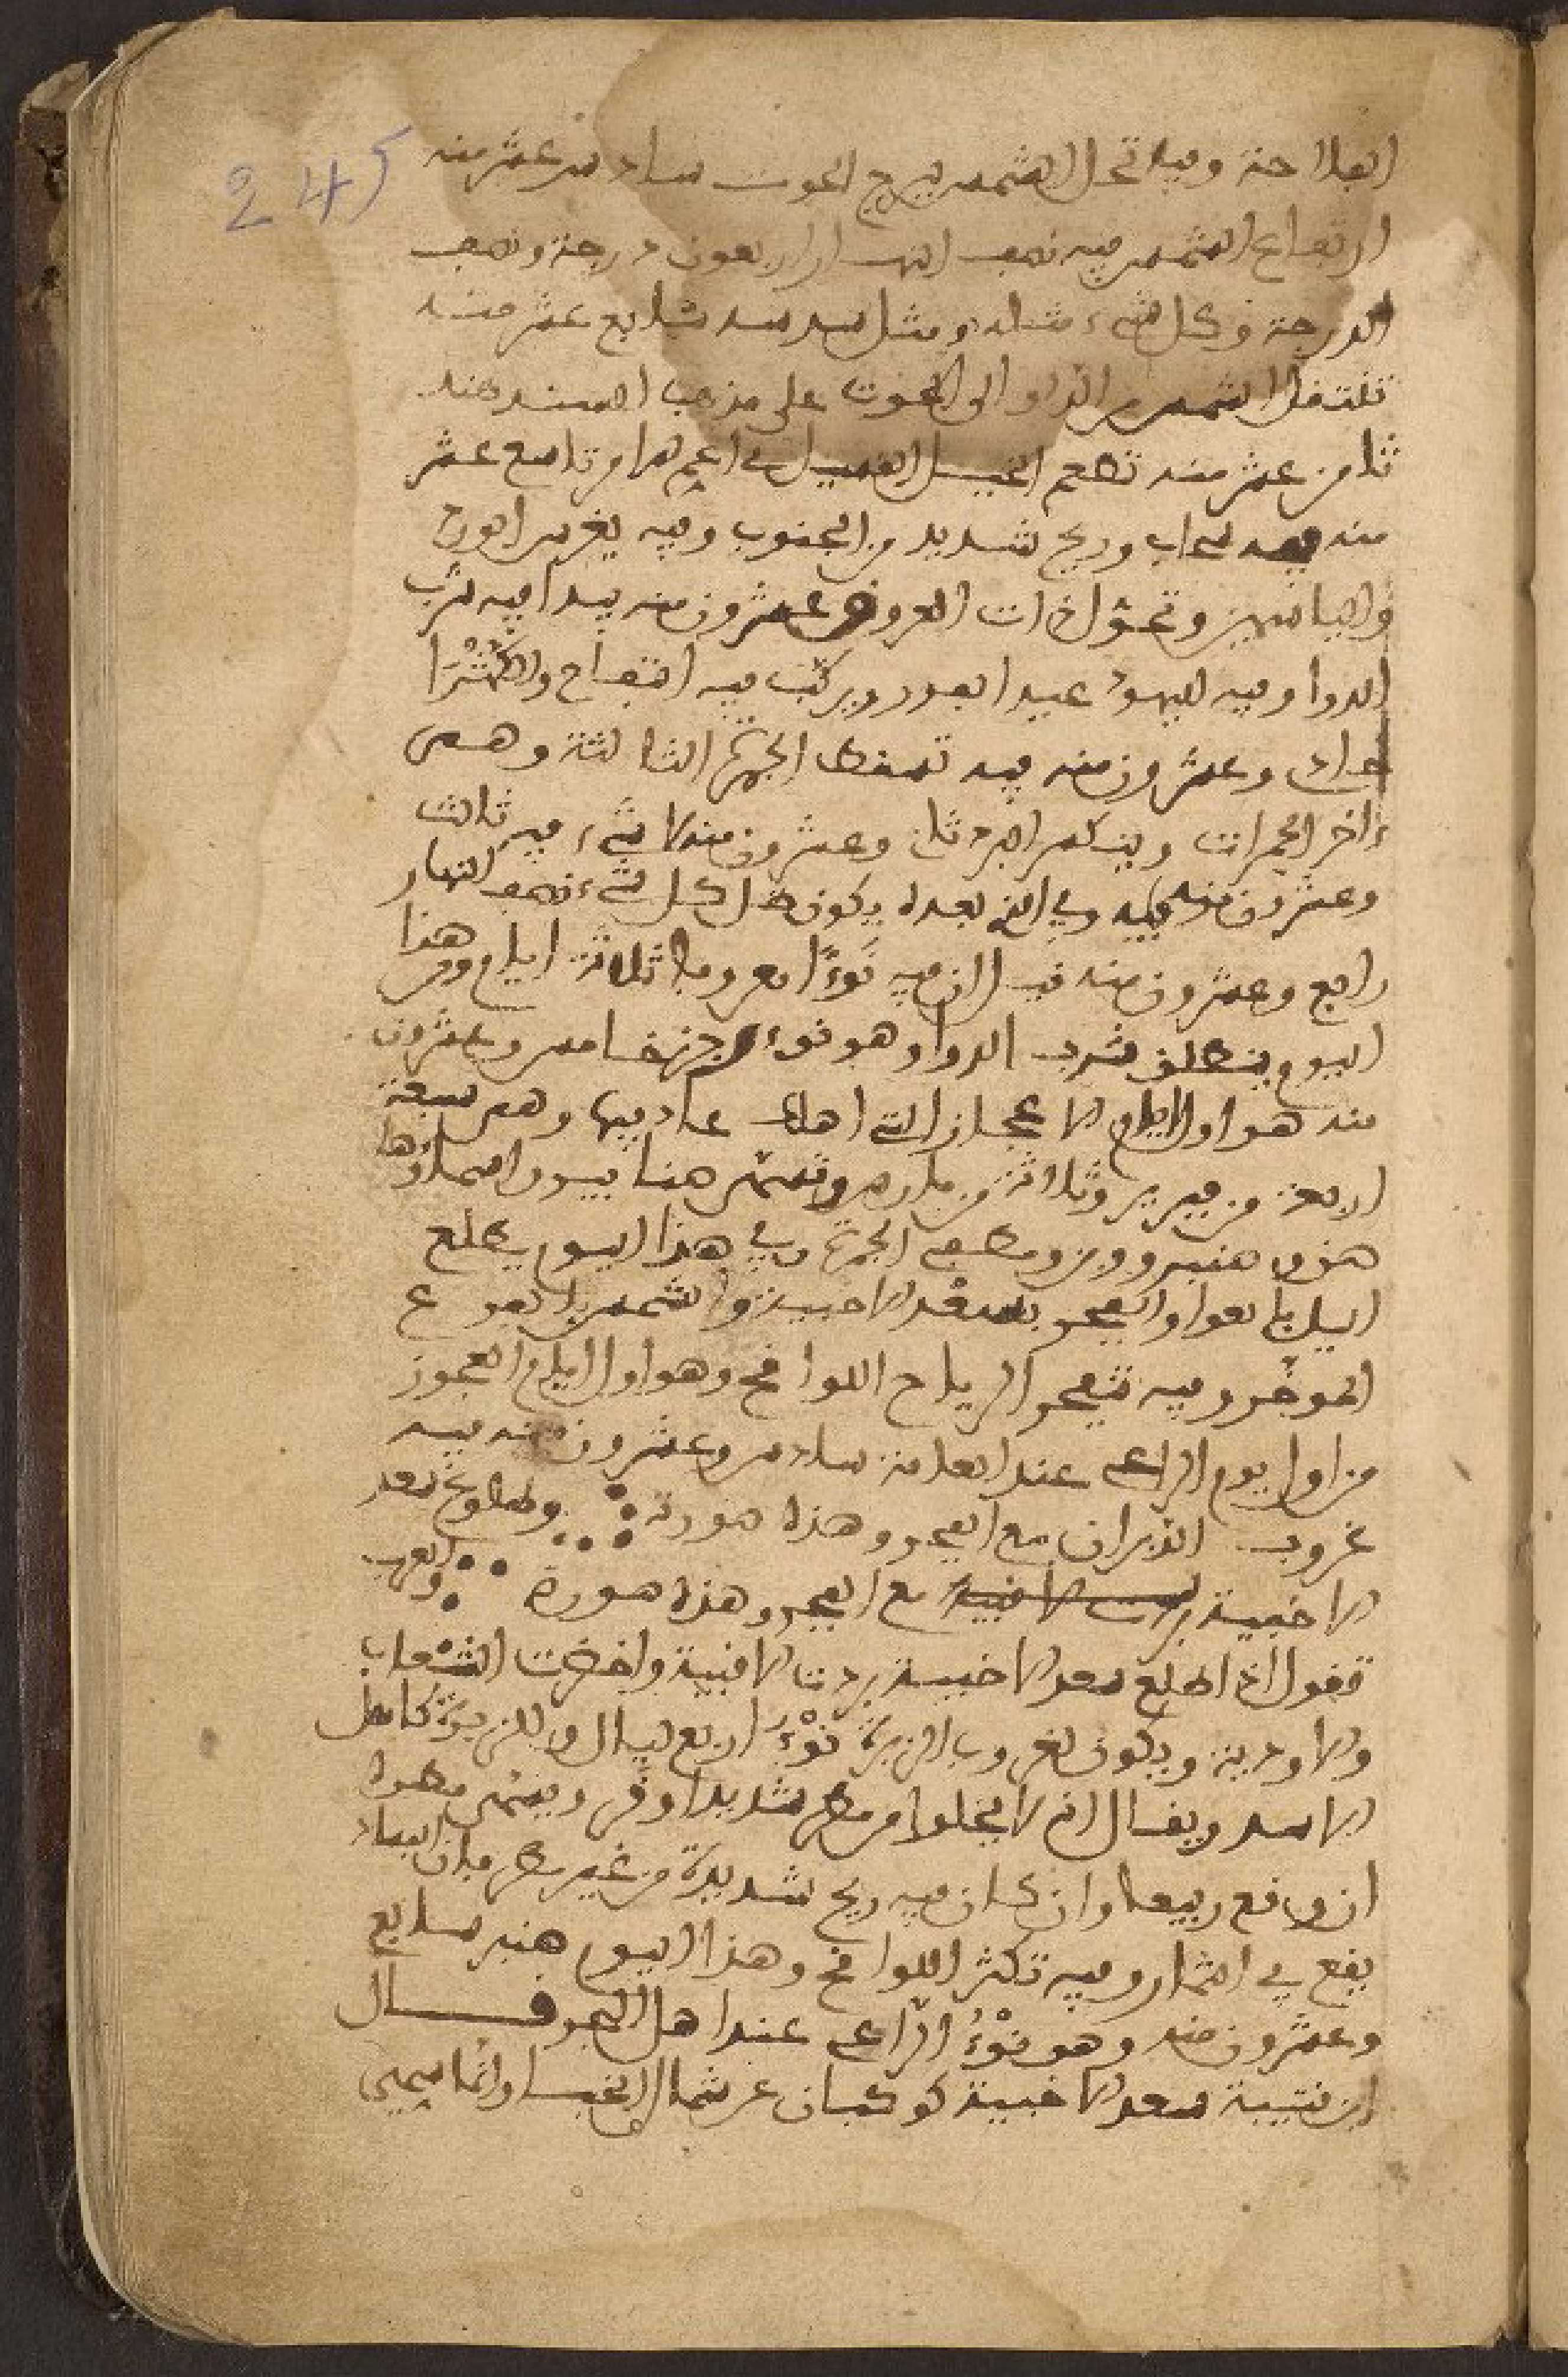 245
الفلاحة وفيه تحل الشمس ببرج الحوت سادس عشر منه
ارتفاع الشمس فيه نصف النهار اربعون درجة ونصف
الدرجة وظل كل شيء مثله ومثل سدسه سابع عشر منه
تنتقل الشمس من الدلو الى الحوت على مذهب السند هند
ثامن عشر منه تطعم الخيل الفصيل في اعم الامر تاسع عشر
منه فيه سحاب وريح شديد من الجنوب وفيه يغرس الورد
والياسمين وتحول ذات العروق عشرون منه يبدا فيه شرب
الدوا وفيه لليهود عيد الفور ويركب فيه التفاح والكمثرا
احد وعشرون منه فيه تسقط الجمرة الثالثة وهي
ءاخر الجمرات وينكسر البرد ثان وعشرون منه لا شيء فيه ثالث
وعشرون منه فيه وفي الذي بعده يكون ظل كل شيء نصف النهار
رابع وعشرون منه قيل ان فيه نوءا معروفا ثلاثة ايام وفي هذا
اليوم ينطلق شرب الدوا وهو نوء خامس وعشرون
منه هو اول ايام الاعجاز التي اهلك عاد فيها وهي سبعة
اربعة من فبرير وثلاثة من مارس وتسمى هنا حسوم اسماؤها
صن وصنبر ووبر ومطفي الجمرة وفي هذا اليوم يطلع
الليل بالعوا والفجر بسعد الاخبية والشمس بالفرغ
الموخر وفيه تتحر الرياح اللواقح وهو اول ايام العجوز
من اول يوم الراعي عند العامة سادس وعشرون منه فيه
غروب الزبران مع الفجر وهذه صورته وطلوع سعد
الاخبية مع الفجر وهذه صورة والعرب
تقول اذا طلع سعد الاخبية بردت الافنية واخضرت الشعاب
والاودية ويكون لغروب الزبرة نوء اربع ليال والزبرة كاهل
الاسد ويقال انه لا يخلوا من مطر شديد او قر ويسمى مطره
ان وافع ربيعا وان كان فيه ريح شديدة من غير مطر فان الفساد
يقع في الثمار وفيه تكثر اللواقح وهذا اليوم صنبر سابع
وعشرون منه وهو نوء الراعي عند اهل البحر قال
ابن قتيبة سعد الاخبية كوكبان عن شمال الخبا وانما سمي